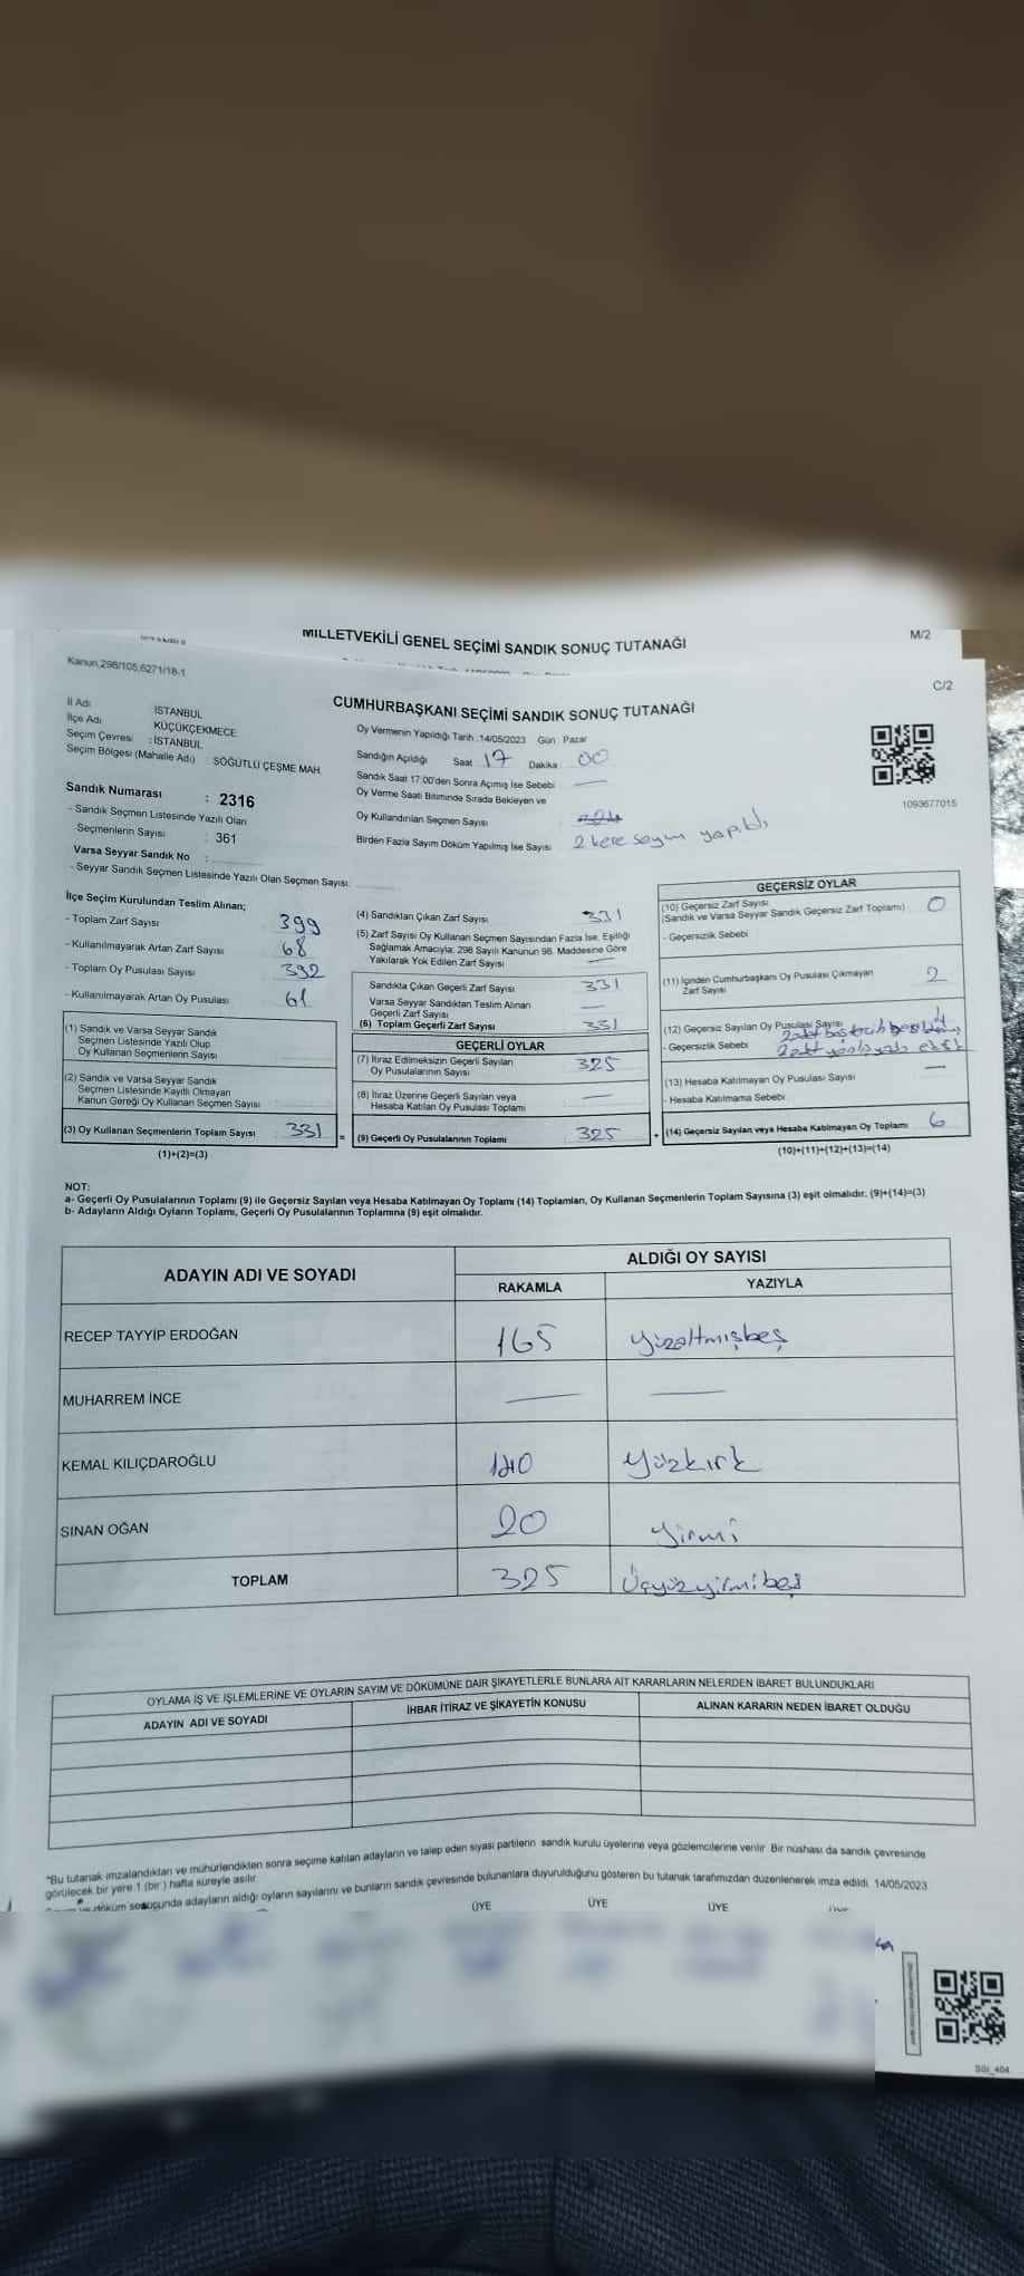 MİLLETVEKİLİ GENEL SEÇİMİ SANDIK SONUÇ TUTANAĞI
M/2
Kanun,298/105,6271/18-1
C/2
CUMHURBAŞKANI SEÇİMİ SANDIK SONUÇ TUTANAĞI
İl Adı İSTANBUL
İlçe Adı KÜÇÜKÇEKMECE
Seçim Çevresi : İSTANBUL
Seçim Bölgesi (Mahalle Adı) SÖĞÜTLÜ ÇEŞME MAH.
Sandık Numarası : 2316
- Sandık Seçmen Listesinde Yazılı Olan
Seçmenlerin Sayısı : 361
Varsa Seyyar Sandık No :
- Seyyar Sandık Seçmen Listesinde Yazılı Olan Seçmen Sayısı:
Oy Vermenin Yapıldığı Tarih :14/05/2023 Gün : Pazar
Sandığın Açıldığı Saat 17 Dakika : 00
Sandık Saat 17:00'den Sonra Açımış İse Sebebi —
Oy Verme Saati Bitiminde Sırada Bekleyen ve
Oy Kullandırılan Seçmen Sayısı
Birden Fazla Sayım Döküm Yapılmış İse Sayısı 2 kere sayım yapıldı
1093677015
İlçe Seçim Kurulundan Teslim Alınan;
- Toplam Zarf Sayısı 399
- Kullanılmayarak Artan Zarf Sayısı 68
- Toplam Oy Pusulası Sayısı 392
- Kullanılmayarak Artan Oy Pusulası 61
(1) Sandık ve Varsa Seyyar Sandık
Seçmen Listesinde Yazılı Olup
Oy Kullanan Seçmenlerin Sayısı
(2) Sandık ve Varsa Seyyar Sandık
Seçmen Listesinde Kayıtlı Olmayan
Kanun Gereği Oy Kullanan Seçmen Sayısı
(3) Oy Kullanan Seçmenlerin Toplam Sayısı 331
(1)+(2)=(3)
(4) Sandıktan Çıkan Zarf Sayısı 331
(5) Zarf Sayısı Oy Kullanan Seçmen Sayısından Fazla İse, Eşitliği
Sağlamak Amacıyla; 298 Sayılı Kanunun 98. Maddesine Göre
Yakılarak Yok Edilen Zarf Sayısı —
Sandıkta Çıkan Geçerli Zarf Sayısı 331
Varsa Seyyar Sandıktan Teslim Alınan
Geçerli Zarf Sayısı —
(6) Toplam Geçerli Zarf Sayısı 331
GEÇERLİ OYLAR
(7) İtiraz Edilmeksizin Geçerli Sayılan
Oy Pusulalarının Sayısı 325
(8) İtiraz Üzerine Geçerli Sayılan veya
Hesaba Katılan Oy Pusulası Toplamı —
= (9) Geçerli Oy Pusulalarının Toplamı 325
GEÇERSİZ OYLAR
(10) Geçersiz Zarf Sayısı
(Sandık ve Varsa Seyyar Sandık Geçersiz Zarf Toplamı) 0
- Geçersizlik Sebebi
(11) İçinden Cumhurbaşkanı Oy Pusulası Çıkmayan
Zarf Sayısı 2
(12) Geçersiz Sayılan Oy Pusulası Sayısı 4
- Geçersizlik Sebebi
(13) Hesaba Katılmayan Oy Pusulası Sayısı —
- Hesaba Katılmama Sebebi
+ (14) Geçersiz Sayılan veya Hesaba Katılmayan Oy Toplamı 6
(10)+(11)+(12)+(13)=(14)
NOT:
a- Geçerli Oy Pusulalarının Toplamı (9) ile Geçersiz Sayılan veya Hesaba Katılmayan Oy Toplamı (14) Toplamları, Oy Kullanan Seçmenlerin Toplam Sayısına (3) eşit olmalıdır. (9)+(14)=(3)
b- Adayların Aldığı Oyların Toplamı, Geçerli Oy Pusulalarının Toplamına (9) eşit olmalıdır.
ADAYIN ADI VE SOYADI
ALDIĞI OY SAYISI
RAKAMLA YAZIYLA
RECEP TAYYİP ERDOĞAN 165 yüzaltmışbeş
MUHARREM İNCE — —
KEMAL KILIÇDAROĞLU 140 yüzkırk
SİNAN OĞAN 20 yirmi
TOPLAM 325 Üçyüzyirmibeş
OYLAMA İŞ VE İŞLEMLERİNE VE OYLARIN SAYIM VE DÖKÜMÜNE DAİR ŞİKAYETLERLE BUNLARA AİT KARARLARIN NELERDEN İBARET BULUNDUKLARI
ADAYIN ADI VE SOYADI İHBAR İTİRAZ VE ŞİKAYETİN KONUSU ALINAN KARARIN NEDEN İBARET OLDUĞU
*Bu tutanak imzalandıktan ve mühürlendikten sonra seçime katılan adayların ve talep eden siyasi partilerin sandık kurulu üyelerine veya gözlemcilerine verilir. Bir nüshası da sandık çevresinde
görülecek bir yere 1 (bir) hafta süreyle asılır.
döküm sonucunda adayların aldığı oyların sayılarını ve bunların sandık çevresinde bulunanlara duyurulduğunu gösteren bu tutanak tarafımızdan düzenlenerek imza edildi. 14/05/2023
ÜYE ÜYE ÜYE